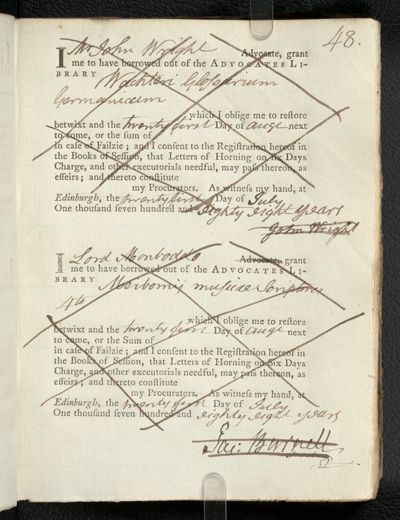 48.
I Mr John Wright Advocate, grant
me to have borrowed out of the ADVOCATES LI-
BRARY Wachteri Glossarium
Germanicum
which I oblige me to restore
betwixt and the twenty first Day of augt next
to come, or the sum of
in case of Failzie; and I consent to the Registration hereof in
the Books of Session, that Letters of Horning on six Days
Charge, and other executorials needful, may pass thereon, as
effeirs; and thereto constitute
my Procurators. As witness my hand, at
Edinburgh, the twenty first Day of July
One thousand seven hundred and eighty eight years
John Wright
I Lord Monboddo Advocate, grant
me to have borrowed out of the ADVOCATES LI-
BRARY Meibomij musicae Scriptores
4to
which I oblige me to restore
betwixt and the twenty first Day of augt next
to come, or the Sum of
in case of Failzie; and I consent to the Registration hereof in
the Books of Session, that Letters of Horning on six Days
Charge, and other executorials needful, may pass thereon, as
effeirs; and thereto constitute
my Procurators. As witness my hand, at
Edinburgh, the twenty first Day of July
One thousand seven hundred and eighty eight years
Ja: Burnett